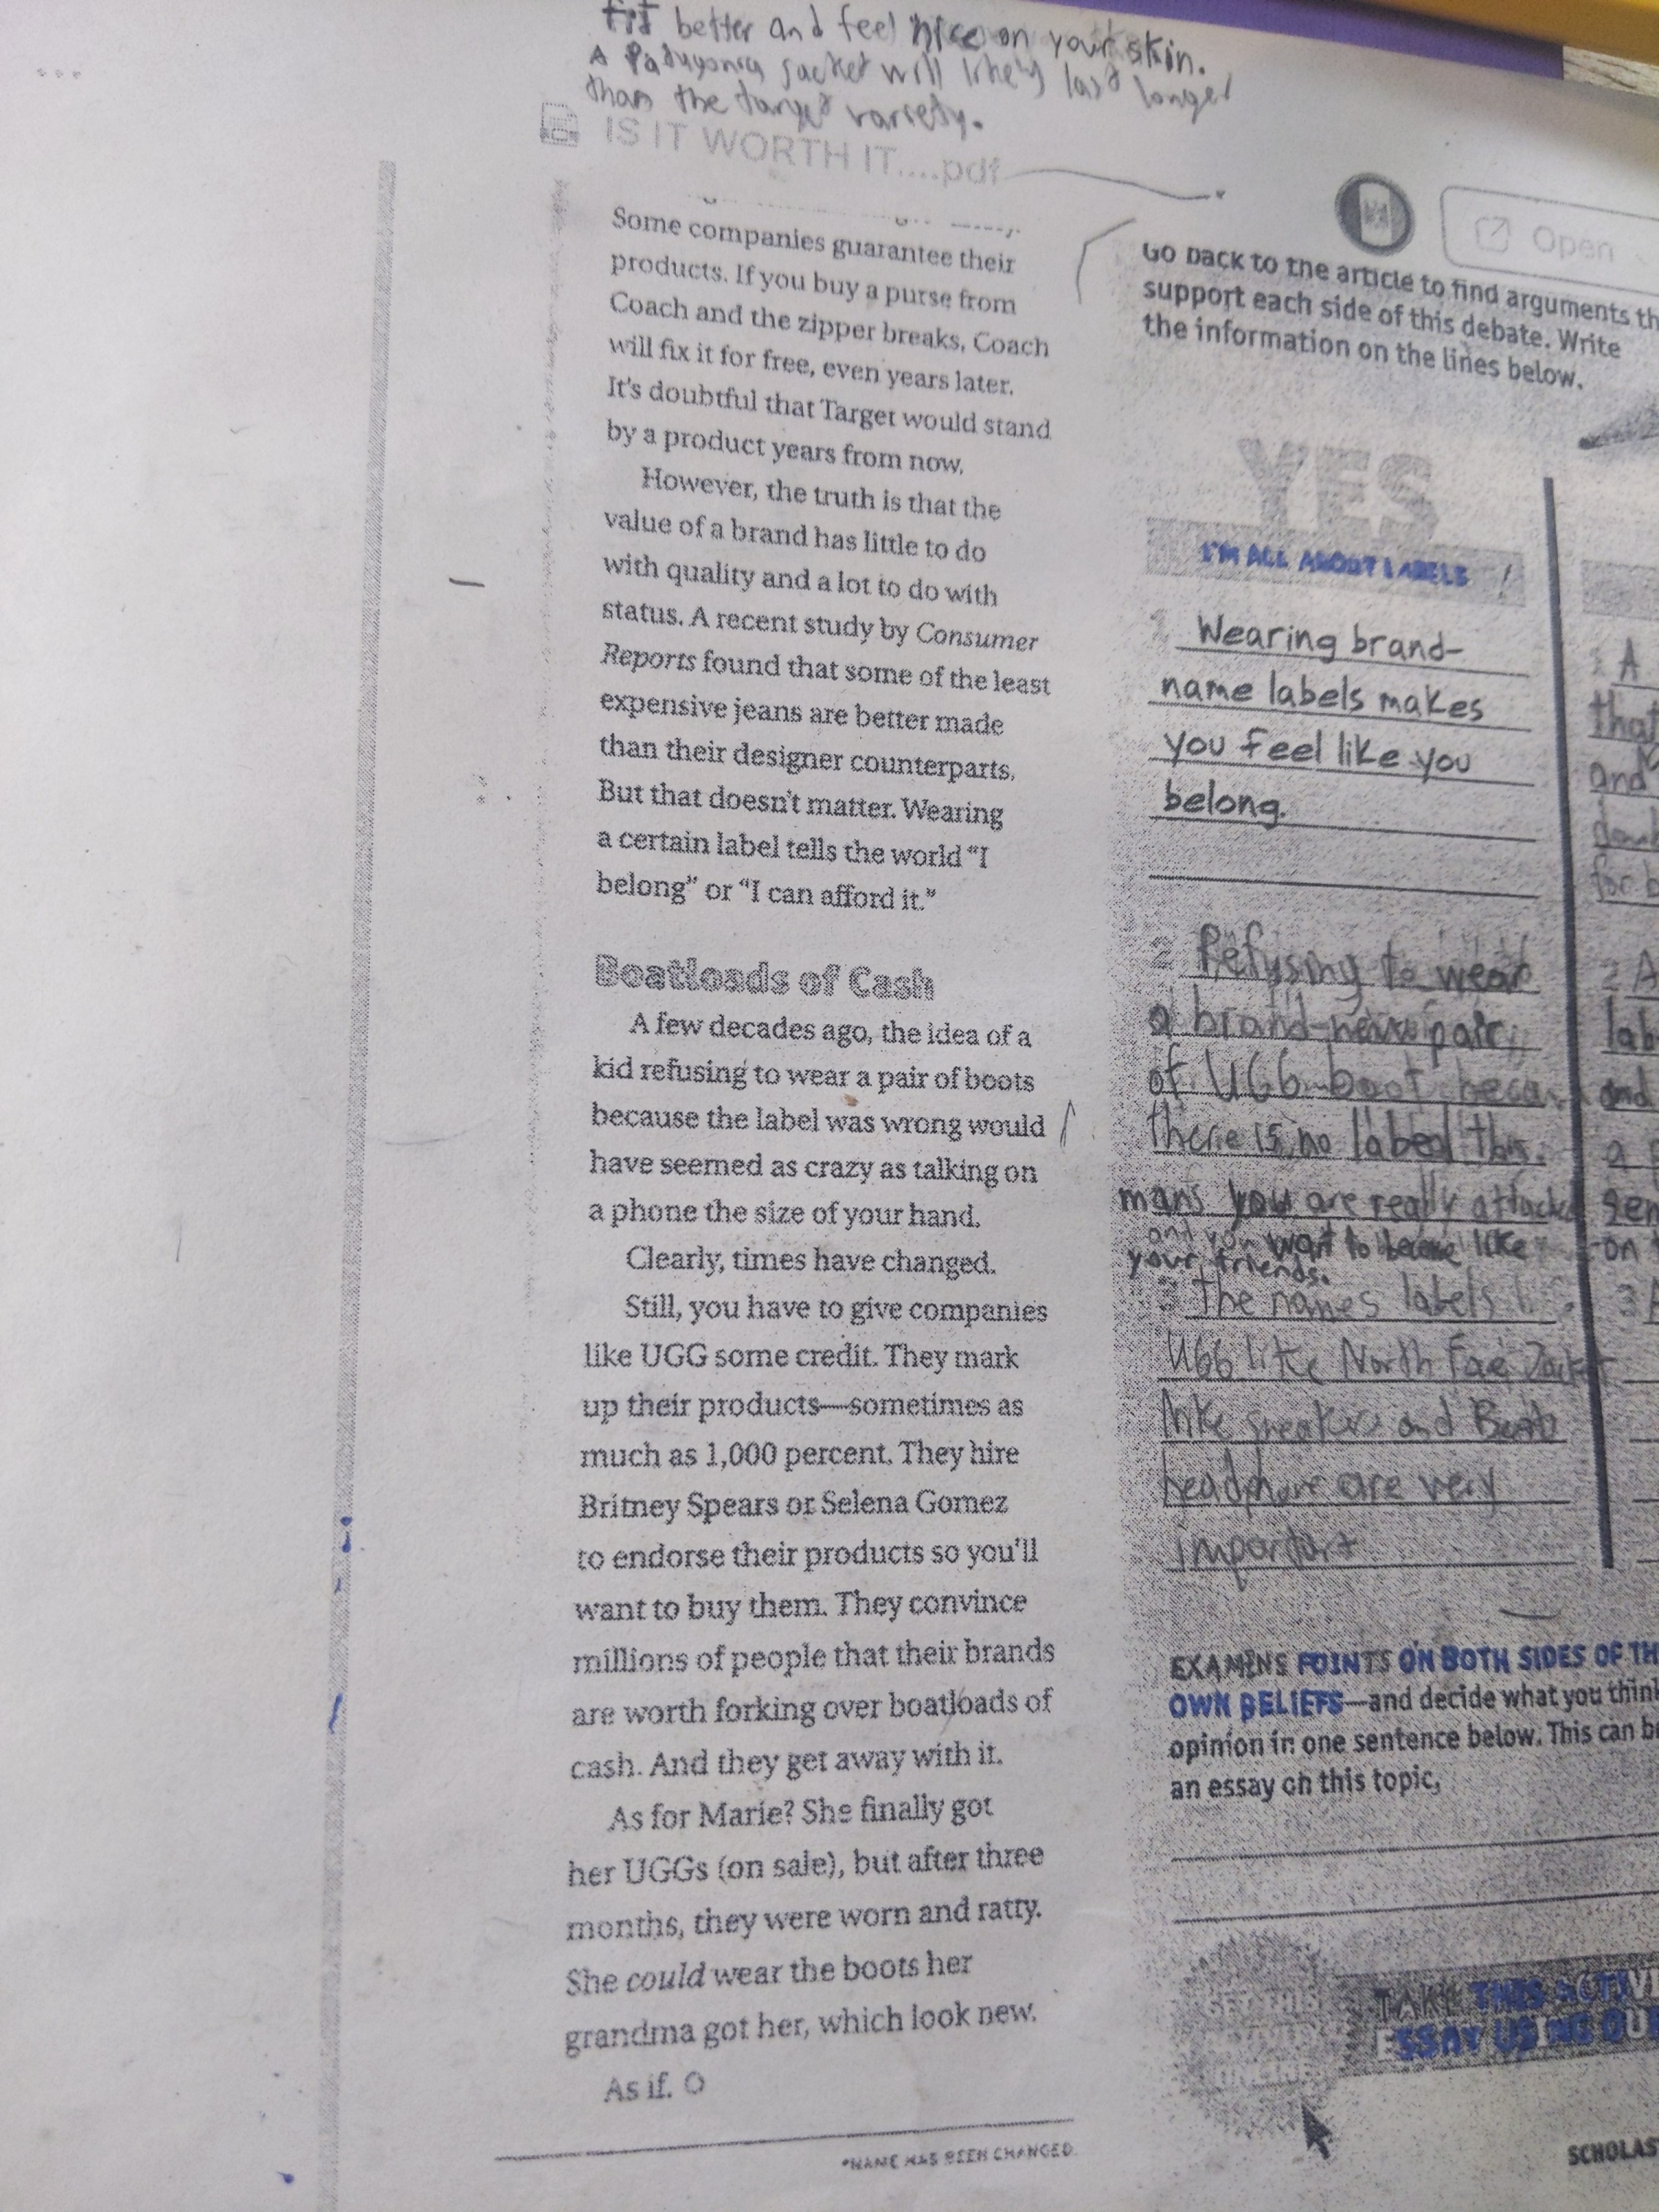 fit better and feel nice on your skin.
A Patagonia jacket will likely last longer
than the target variety.
IS IT WORTH IT....pdf
Open
Some companies guarantee their
products. If you buy a purse from
Coach and the zipper breaks, Coach
will fix it for free, even years later.
It's doubtful that Target would stand
by a product years from now.
However, the truth is that the
value of a brand has little to do
with quality and a lot to do with
status. A recent study by Consumer
Reports found that some of the least
expensive jeans are better made
than their designer counterparts.
But that doesn't matter. Wearing
a certain label tells the world "I
belong" or "I can afford it."
Boatloads of Cash
A few decades ago, the idea of a
kid refusing to wear a pair of boots
because the label was wrong would
have seemed as crazy as talking on
a phone the size of your hand.
Clearly, times have changed.
Still, you have to give companies
like UGG some credit. They mark
up their products—sometimes as
much as 1,000 percent. They hire
Britney Spears or Selena Gomez
to endorse their products so you'll
want to buy them. They convince
millions of people that their brands
are worth forking over boatloads of
cash. And they get away with it.
As for Marie? She finally got
her UGGs (on sale), but after three
months, they were worn and ratty.
She could wear the boots her
grandma got her, which look new.
As if.
*NAME HAS BEEN CHANGED.
Go back to the article to find arguments th
support each side of this debate. Write
the information on the lines below.
YES
I'M ALL ABOUT LABELS!
1 Wearing brand-
name labels makes
you feel like you
belong.
2 Refusing to wear
a brand-new pair
of UGG boot
there is no label this
mans you are really attacked
and you want to become like
your friends.
3 The names labels
UGG like North Face Jacket
Nike sneakers and Beats
headphone are very
important
1 A
that
and
for b
2 A
lab
and
a p
gen
on
3 A
EXAMINE POINTS ON BOTH SIDES OF TH
OWN BELIEFS—and decide what you think
opinion in one sentence below. This can be
an essay on this topic.
TAKE THIS ACTIVI
ESSAY USING OUR
SCHOLAS